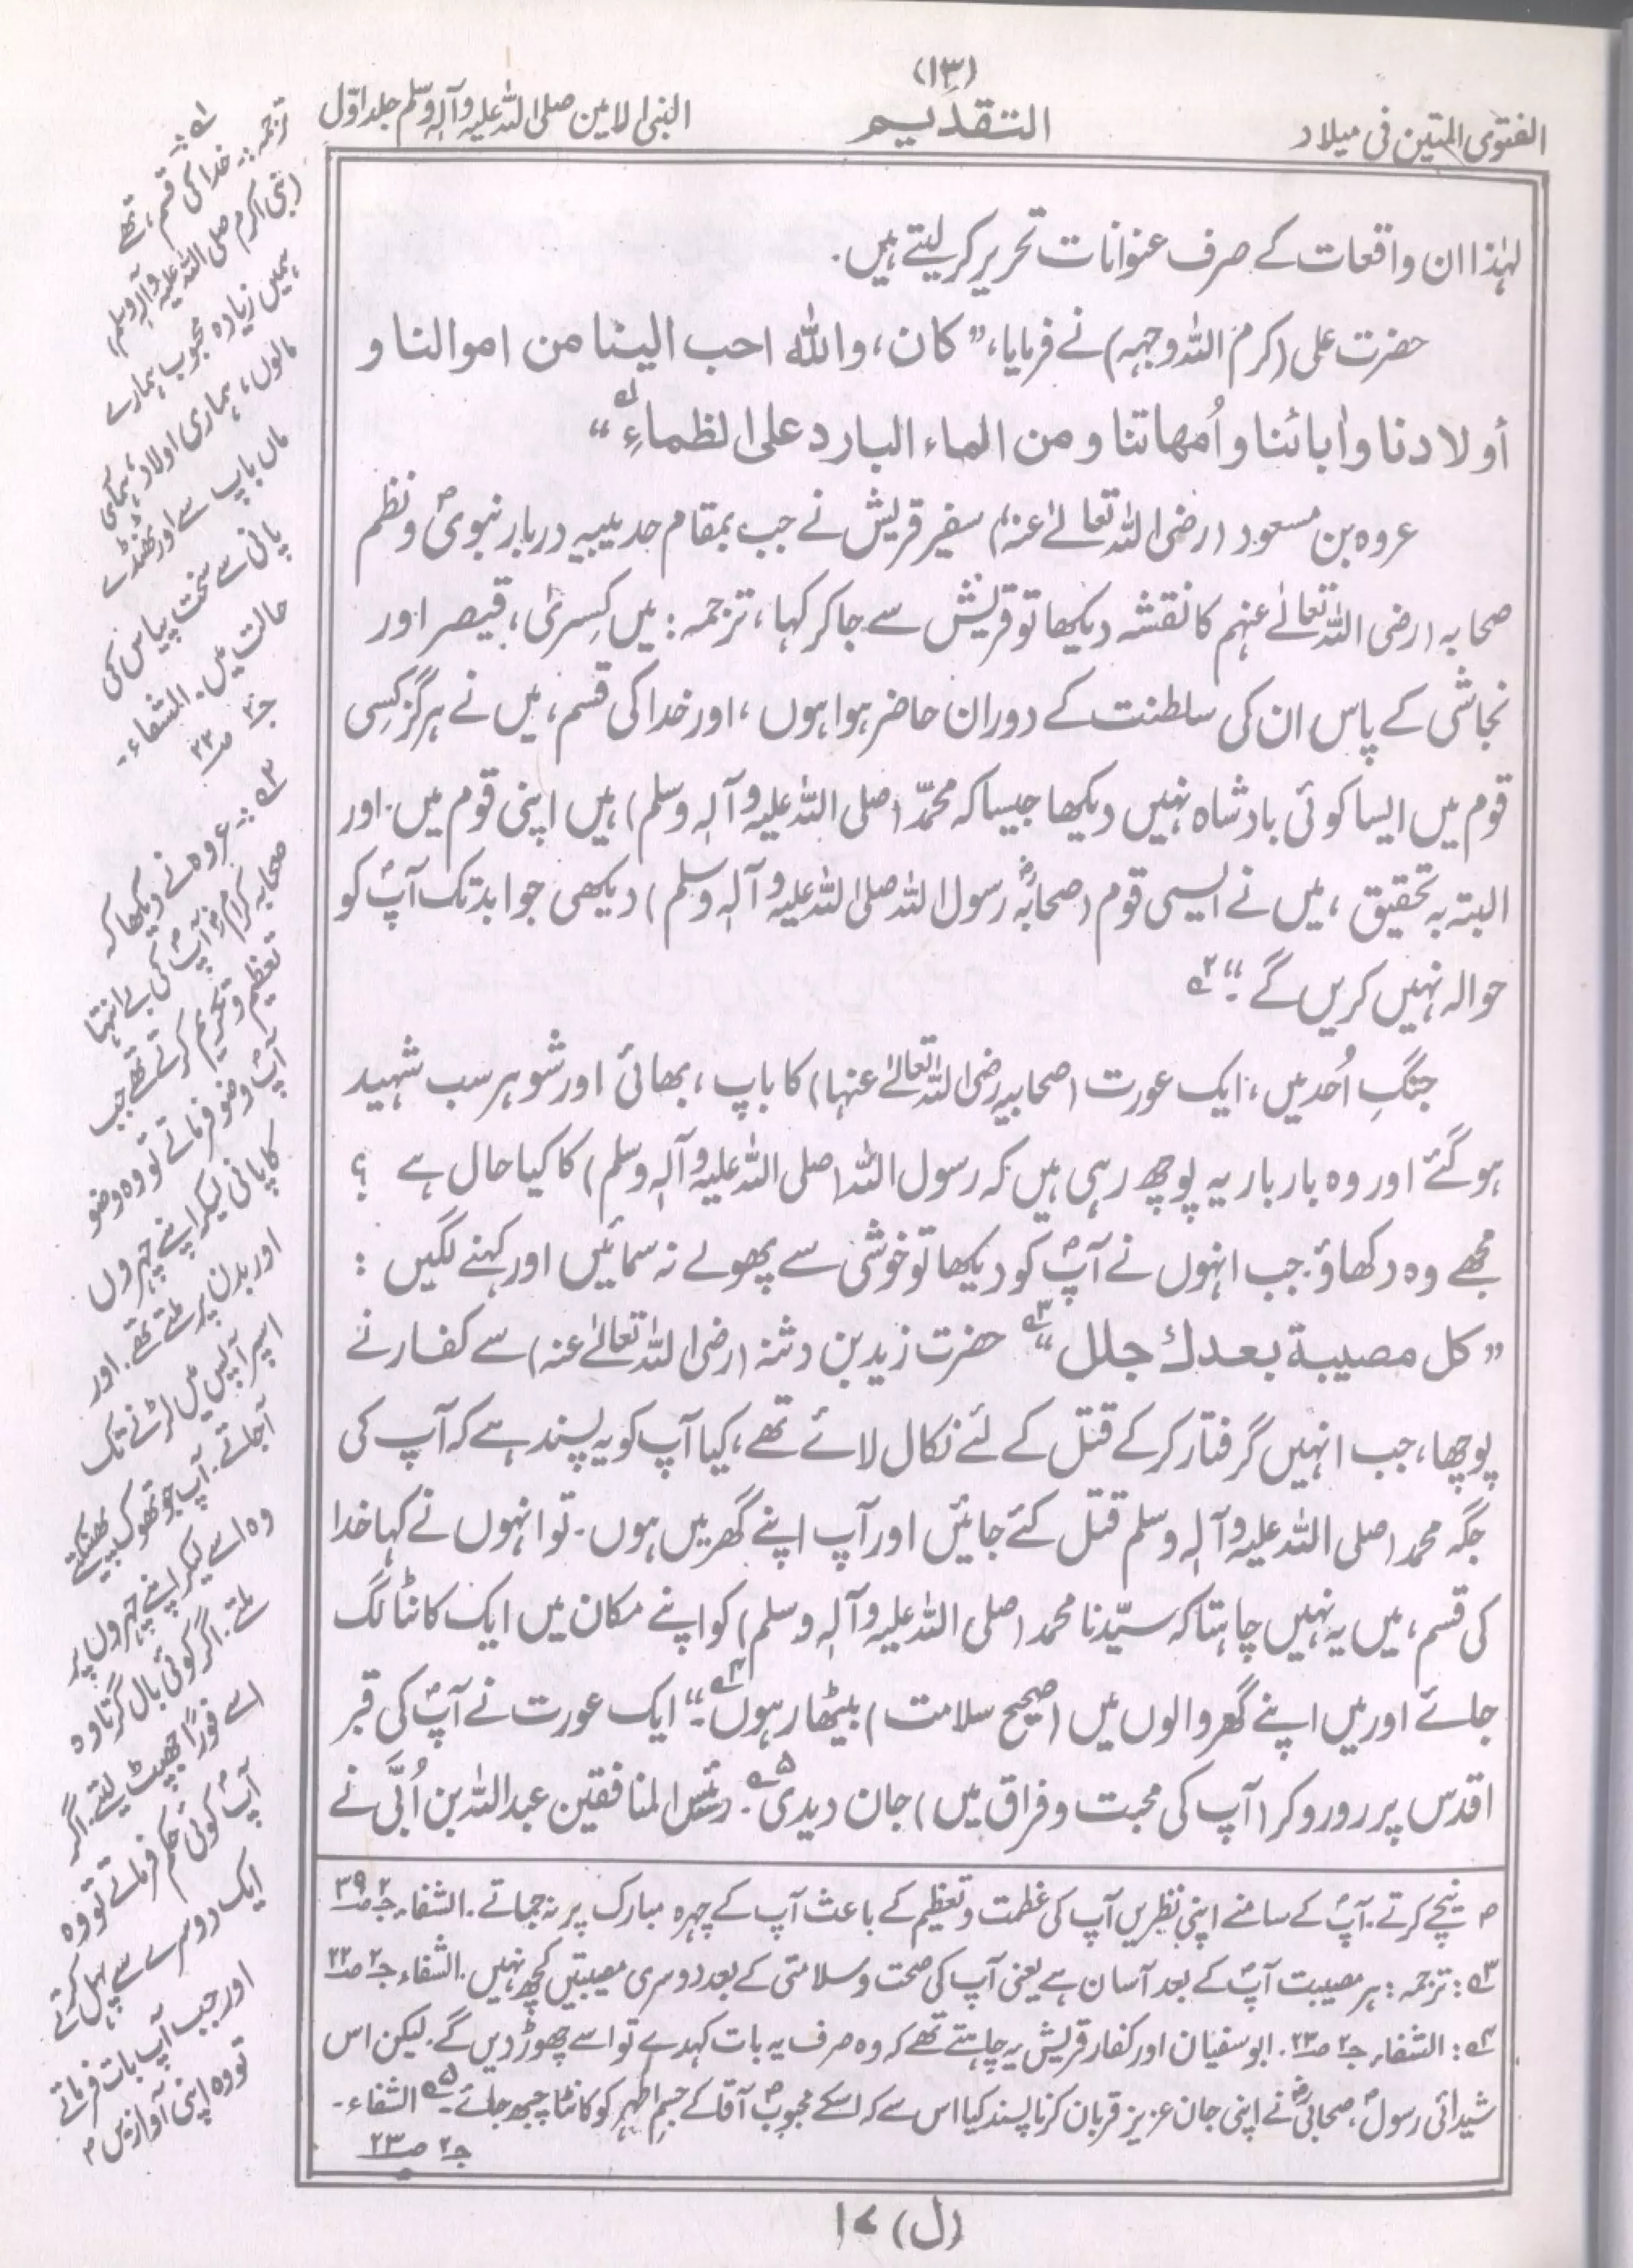 (۱۳)
الفتوی المتین فی میلاد
التقدیم
النبی الامین صلی اللہ علیہ وآلہ وسلم جلد اوّل
لہٰذا ان واقعات کے صرف عنوانات تحریر کر لیتے ہیں.
حضرت علی (کرم اللہ وجہہ) نے فرمایا، ” کان، واللہ احب الینا من اموالنا و
أولادنا واٰبائنا و اُمهاتنا و من الماء البارد علی الظماءِ “ ۱ے
عروہ بن مسعود (رضی اللہ تعالےٰ عنہ) سفیرِ قریش نے جب بمقام حدیبیہ دربار نبویؐ و نظم
صحابہ (رضی اللہ تعالےٰ عنہم کا نقشہ دیکھا تو قریش سے جا کر کہا، ترجمہ: میں کِسریٰ، قیصر اور
نجاشی کے پاس ان کی سلطنت کے دوران حاضر ہوا ہوں، اور خدا کی قسم، میں نے ہرگز کسِی
قوم میں ایسا کوئی بادشاہ نہیں دیکھا جیسا کہ محمدّ (صلی اللہ علیہ وآلہٖ وسلم) ہیں اپنی قوم میں. اور
البتہ بہ تحقیق، میں نے ایسی قوم (صحابہؓ رسول اللہ صلی اللہ علیہ وآلہٖ وسلم) دیکھی جو ابد تک آپؐ کو
حوالہ نہیں کریں گے “ ۲ے
جنگِ اُحد میں، ایک عورت (صحابیہ رضی اللہ تعالےٰ عنہا) کا باپ، بھائی اور شوہر سب شہید
ہو گئے اور وہ بار بار یہ پوچھ رہی ہیں کہ رسول اللہ (صلی اللہ علیہ وآلہٖ وسلم) کا کیا حال ہے ؟
مجھے وہ دکھاؤ. جب انہوں نے آپؐ کو دیکھا تو خوشی سے پھولے نہ سمائیں اور کہنے لگیں :
” کل مصیبة بعدك جلل “ ۳ے حضرت زید بن دثنہ (رضی اللہ تعالےٰ عنہ) سے کفار نے
پوچھا، جب انہیں گرفتار کر کے قتل کے لئے نکال لائے تھے، کیا آپ کو یہ پسند ہے کہ آپ کی
جگہ محمد (صلی اللہ علیہ وآلہٖ وسلم قتل کئے جائیں اور آپ اپنے گھر میں ہوں. تو انہوں نے کہا خدا
کی قسم، میں یہ نہیں چاہتا کہ سیّدنا محمد (صلی اللہ علیہ وآلہٖ وسلم) کو اپنے مکان میں ایک کانٹا لگ
جائے اور میں اپنے گھر والوں میں (صحیح سلامت) بیٹھا رہوں “ ۴ے ایک عورت نے آپؐ کی قبر
اقدس پر رو رو کر (آپ کی محبت و فراق میں) جان دیدی ۵ے. رئیس المنافقین عبداللہ بن اُبَی نے
م نیچے کرتے. آپؐ کے سامنے اپنی نظریں آپ کی عظمت و تعظیم کے باعث آپ کے چہرہ مبارک پر نہ جماتے. الشفاء ج۲ ص۳۹
۳ے : ترجمہ: ہر مصیبت آپؐ کے بعد آسان ہے یعنی آپ کی صحت و سلامتی کے بعد دوسری مصیبتیں کچھ نہیں. الشفاء ج۲ ص۲۲
۴ے : الشفاء ج۲ ص۲۳. ابو سفیان اور کفار قریش یہ چاہتے تھے کہ وہ صرف یہ بات کہدے تو اسے چھوڑ دیں گے. لیکن اس
شیدائی رسولؐ، صحابیؓ نے اپنی جان عزیز قربان کرنا پسند کیا اس سے کہ اسکے محبوبؐ آقا کے جسمِ اطہر کو کانٹا چبھ جائے. ۵ے الشفاء.
ج۲ ص۲۳
۱ے :.
ترجمہ :. خدا کی قسم، تھے
(نبی اکرم صلی اللہ علیہ وآلہٖ وسلم)
ہمیں زیادہ محبوب ہمارے
مالوں، ہماری اولاد، ہمارے
ماں باپ سے اور ٹھنڈے
پانی سے سخت پیاس کی
حالت میں. الشفاء.
ج۲ ص۲۲
۲ے :. عروہ نے دیکھا کہ
صحابہ کرامؓ آپؐ کی بے انتہا
تعظیم و تکریم کرتے تھے جب
آپؐ وضو فرماتے تو وہ وضو
کا پانی لیکر اپنے چہروں
اور بدن پر ملتے تھے. اور
اسپر آپس میں لڑنے تک
آجاتے. آپ جو تھوک پھینکتے
وہ اسے لیکر اپنے چہروں پر
ملتے. اگر کوئی بال گرتا وہ
اسے فوراً جھپٹ لیتے. اگر
آپؐ کوئی حکم فرماتے تو وہ
ایک دوسرے سے پہل کرتے
اور جب آپ بات فرماتے
تو وہ اپنی آوازیں م
(ل) ۱۷